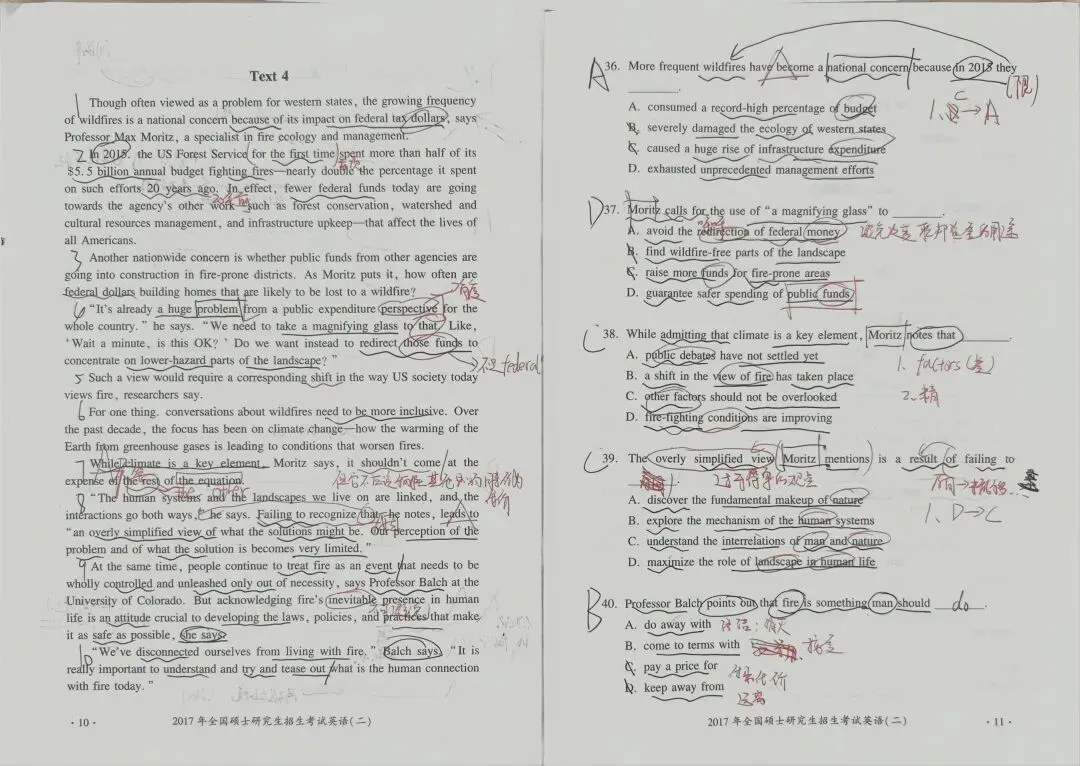 Text 4
1 Though often viewed as a problem for western states, the growing frequency
of wildfires is a national concern because of its impact on federal tax dollars, says
Professor Max Moritz, a specialist in fire ecology and management.
2 In 2015. the US Forest Service for the first time spent more than half of its
$5.5 billion annual budget fighting fires—nearly double the percentage it spent
on such efforts 20 years ago. In effect, fewer federal funds today are going
towards the agency's other work—such as forest conservation, watershed and
cultural resources management, and infrastructure upkeep—that affect the lives of
all Americans.
3 Another nationwide concern is whether public funds from other agencies are
going into construction in fire-prone districts. As Moritz puts it, how often are
federal dollars building homes that are likely to be lost to a wildfire?
"It's already a huge problem from a public expenditure perspective for the
whole country." he says. "We need to take a magnifying glass to that. Like,
'Wait a minute, is this OK?' Do we want instead to redirect those funds to
concentrate on lower-hazard parts of the landscape?"
不是 federal
5 Such a view would require a corresponding shift in the way US society today
views fire, researchers say.
6 For one thing. conversations about wildfires need to be more inclusive. Over
the past decade, the focus has been on climate change—how the warming of the
Earth from greenhouse gases is leading to conditions that worsen fires.
7 While climate is a key element, Moritz says, it shouldn't come at the
expense of the rest of the equation.
the other
8 "The human systems and the landscapes we live on are linked, and the
interactions go both ways." he says. Failing to recognize that, he notes, leads to
"an overly simplified view of what the solutions might be. Our perception of the
problem and of what the solution is becomes very limited."
9 At the same time, people continue to treat fire as an event that needs to be
wholly controlled and unleashed only out of necessity, says Professor Balch at the
University of Colorado. But acknowledging fire's inevitable presence in human
life is an attitude crucial to developing the laws, policies, and practices that make
it as safe as possible, she says.
10 "We've disconnected ourselves from living with fire." Balch says. "It is
really important to understand and try and tease out what is the human connection
with fire today."
· 10 ·
2017 年全国硕士研究生招生考试英语(二)
A 36. More frequent wildfires have become a national concern because in 2015 they
______.
1、 → A
A. consumed a record-high percentage of budget
B. severely damaged the ecology of western states
C. caused a huge rise of infrastructure expenditure
D. exhausted unprecedented management efforts
D 37. Moritz calls for the use of "a magnifying glass" to ______.
A. avoid the redirection of federal money 避免改变联邦资金的用途
B. find wildfire-free parts of the landscape
C. raise more funds for fire-prone areas
D. guarantee safer spending of public funds
C 38. While admitting that climate is a key element, Moritz notes that ______.
A. public debates have not settled yet
1、factors
B. a shift in the view of fire has taken place
C. other factors should not be overlooked
2、精
D. fire-fighting conditions are improving
C 39. The overly simplified view Moritz mentions is a result of failing to
______.
A. discover the fundamental makeup of nature
1、D→C
B. explore the mechanism of the human systems
C. understand the interrelations of man and nature
D. maximize the role of landscape in human life
B 40. Professor Balch points out that fire is something man should do.
A. do away with
B. come to terms with
C. pay a price for 付出代价
D. keep away from 远离
2017 年全国硕士研究生招生考试英语(二)
· 11 ·